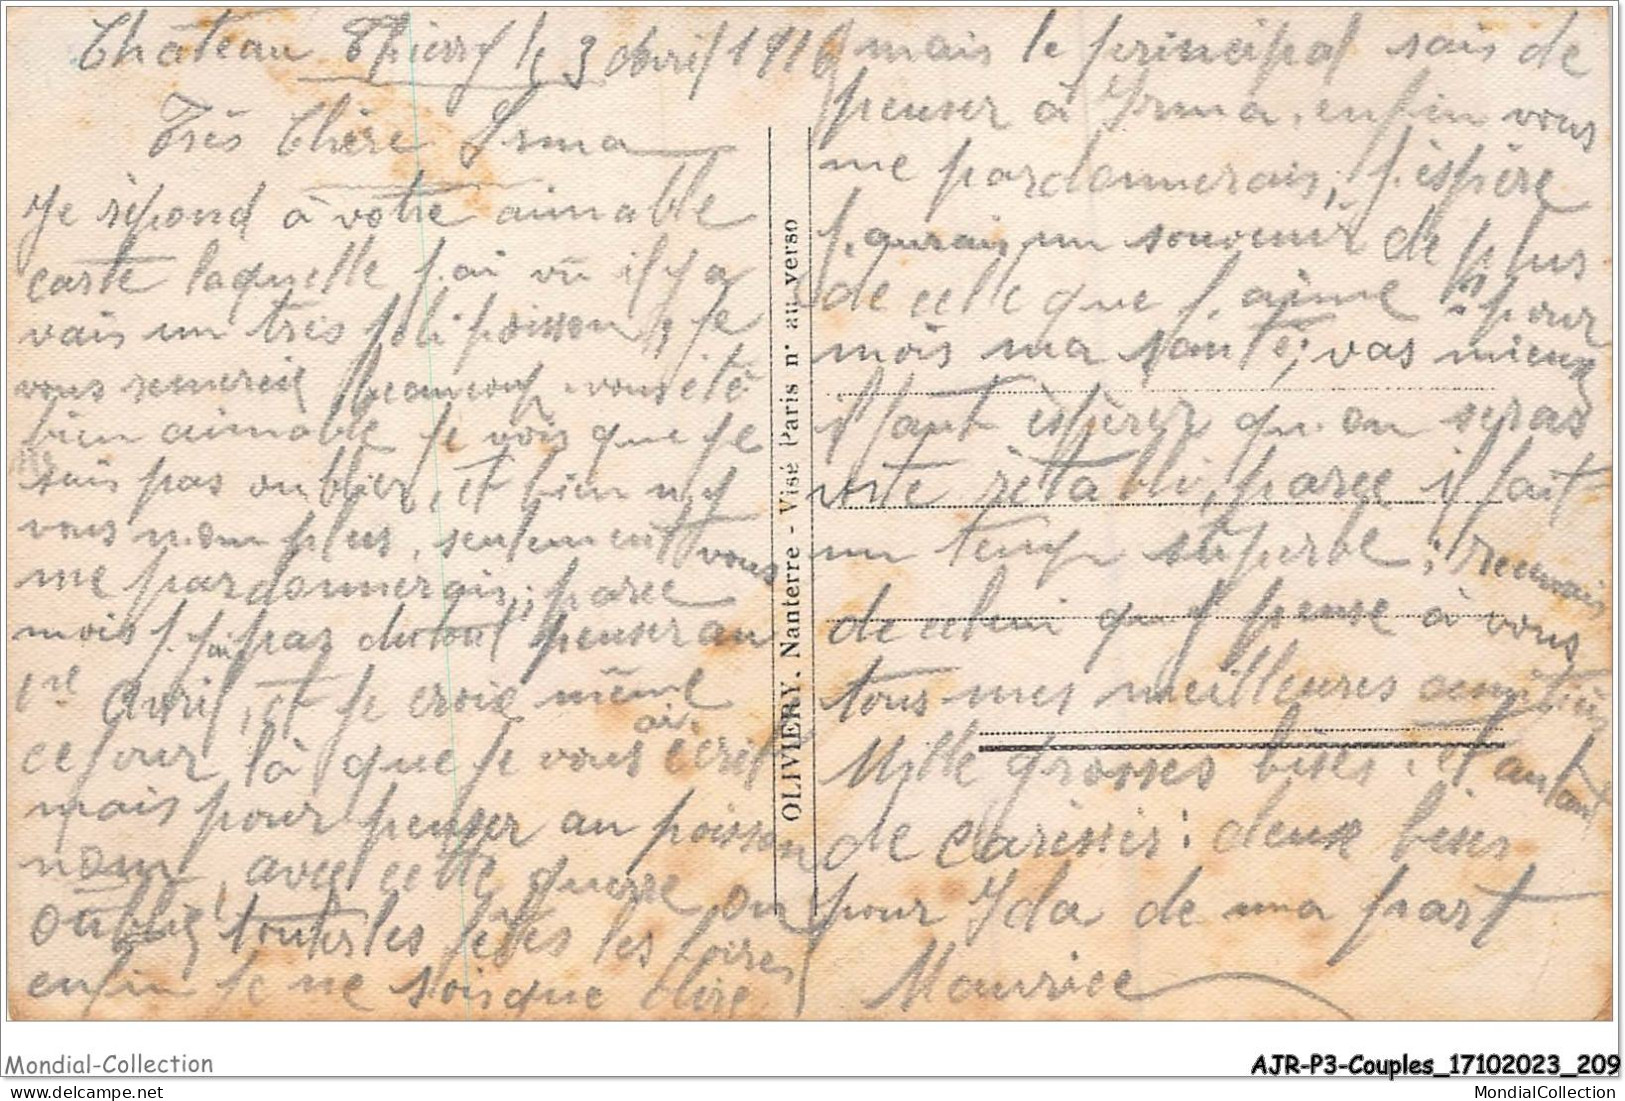 Château Thierry le 3 Avril 1916
Très Chère Irma
Je répond à votre aimable
carte laquelle j.ai vu il y a
vais un très joli poisson, je
vous remercie beaucoup vous été
bien aimable je vois que je
suis pas oublier, et bien
vous non plus, seulement vous
me pardonnerais, parce
mois j. pas du tout penser au
1er Avril, et je crois même
ce jour là que je vous ai écrit
mais pour penser au poisson
non, avec cette guerre on
oublie toutes les fêtes les foires
enfin je ne sois que dire
mais le principal sais de
penser à Irma, enfin vous
me pardonnerais, j.éspère
j. aurais un souvenir de plus
de celle que j. aime pour
mois ma santé, vas mieux
il faut éspèrer qu.on seras
vite rétabli, parce il fait
un temp superbe; recevais
de celui qu.il pense à vous
tous mes meilleures amitiés
Mille grosses bises. et autant
de caresser: deux bises
pour Ida de ma part
Maurice
OLIVIERY. Nanterre - Visé Paris n° au verso
Mondial-Collection
AJR-P3-Couples_17102023_209
delcampe.net
MondialCollection